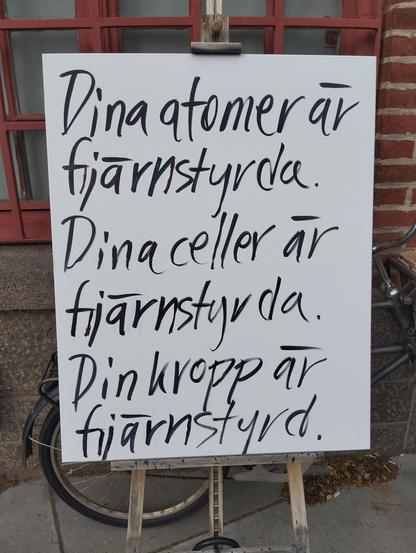 Dina atomer är
fjärnstyrda.
Dina celler är
fjärnstyrda.
Din kropp är
fjärnstyrd.